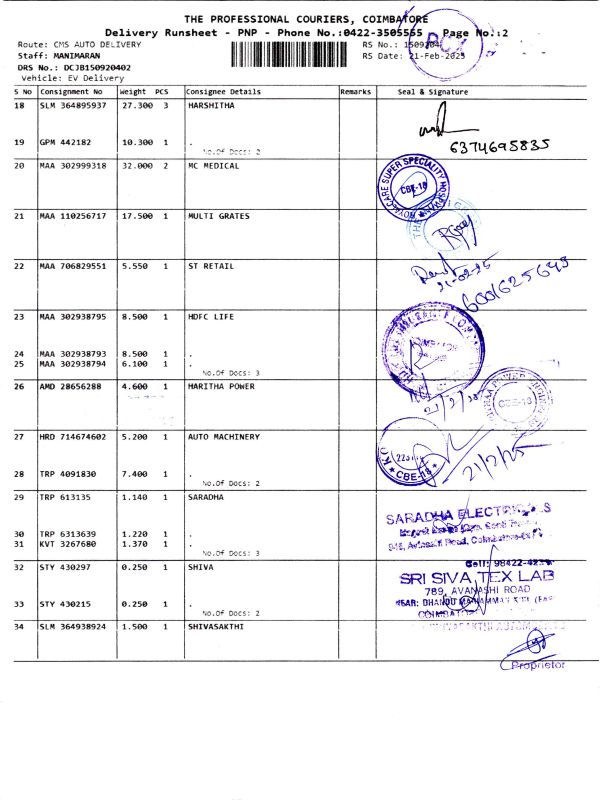 THE PROFESSIONAL COURIERS, COIMBATORE
Delivery Runsheet - PNP - Phone No.:0422-3505565 Page No.:2
Route: CMS AUTO DELIVERY RS No.: 1509204
Staff: MANIMARAN RS Date: 21-Feb-2025
DRS No.: DCJB150920402
Vehicle: EV Delivery
S No Consignment No Weight PCS Consignee Details Remarks Seal & Signature
18 SLM 364895937 27.300 3 HARSHITHA
19 GPM 442182 10.300 1 . 6374695835
No.Of Docs: 2
20 MAA 302999318 32.000 2 MC MEDICAL
CARE SUPER SPECIALITY
CBE-18
21 MAA 110256717 17.500 1 MULTI GRATES
22 MAA 706829551 5.550 1 ST RETAIL
21-02-25
6001625649
23 MAA 302938795 8.500 1 HDFC LIFE
24 MAA 302938793 8.500 1 .
25 MAA 302938794 6.100 1 .
No.Of Docs: 3
26 AMD 28656288 4.600 1 HARITHA POWER
21/2/25
POWER
CBE-18
27 HRD 714674602 5.200 1 AUTO MACHINERY
CBE-18
21/2/25
28 TRP 4091830 7.400 1 .
No.Of Docs: 2
29 TRP 613135 1.140 1 SARADHA
SARADHA ELECTRICALS
30 TRP 6313639 1.220 1 .
31 KVT 3267680 1.370 1 .
Road, Coimbatore
No.Of Docs: 3
32 STY 430297 0.250 1 SHIVA
Cell: 98422-42
SRI SIVA TEX LAB
789, AVANASHI ROAD
33 STY 430215 0.250 1 .
NEAR: DHANDU MARIAMMAN
No.Of Docs: 2
COIMBATORE
34 SLM 364938924 1.500 1 SHIVASAKTHI
Proprietor